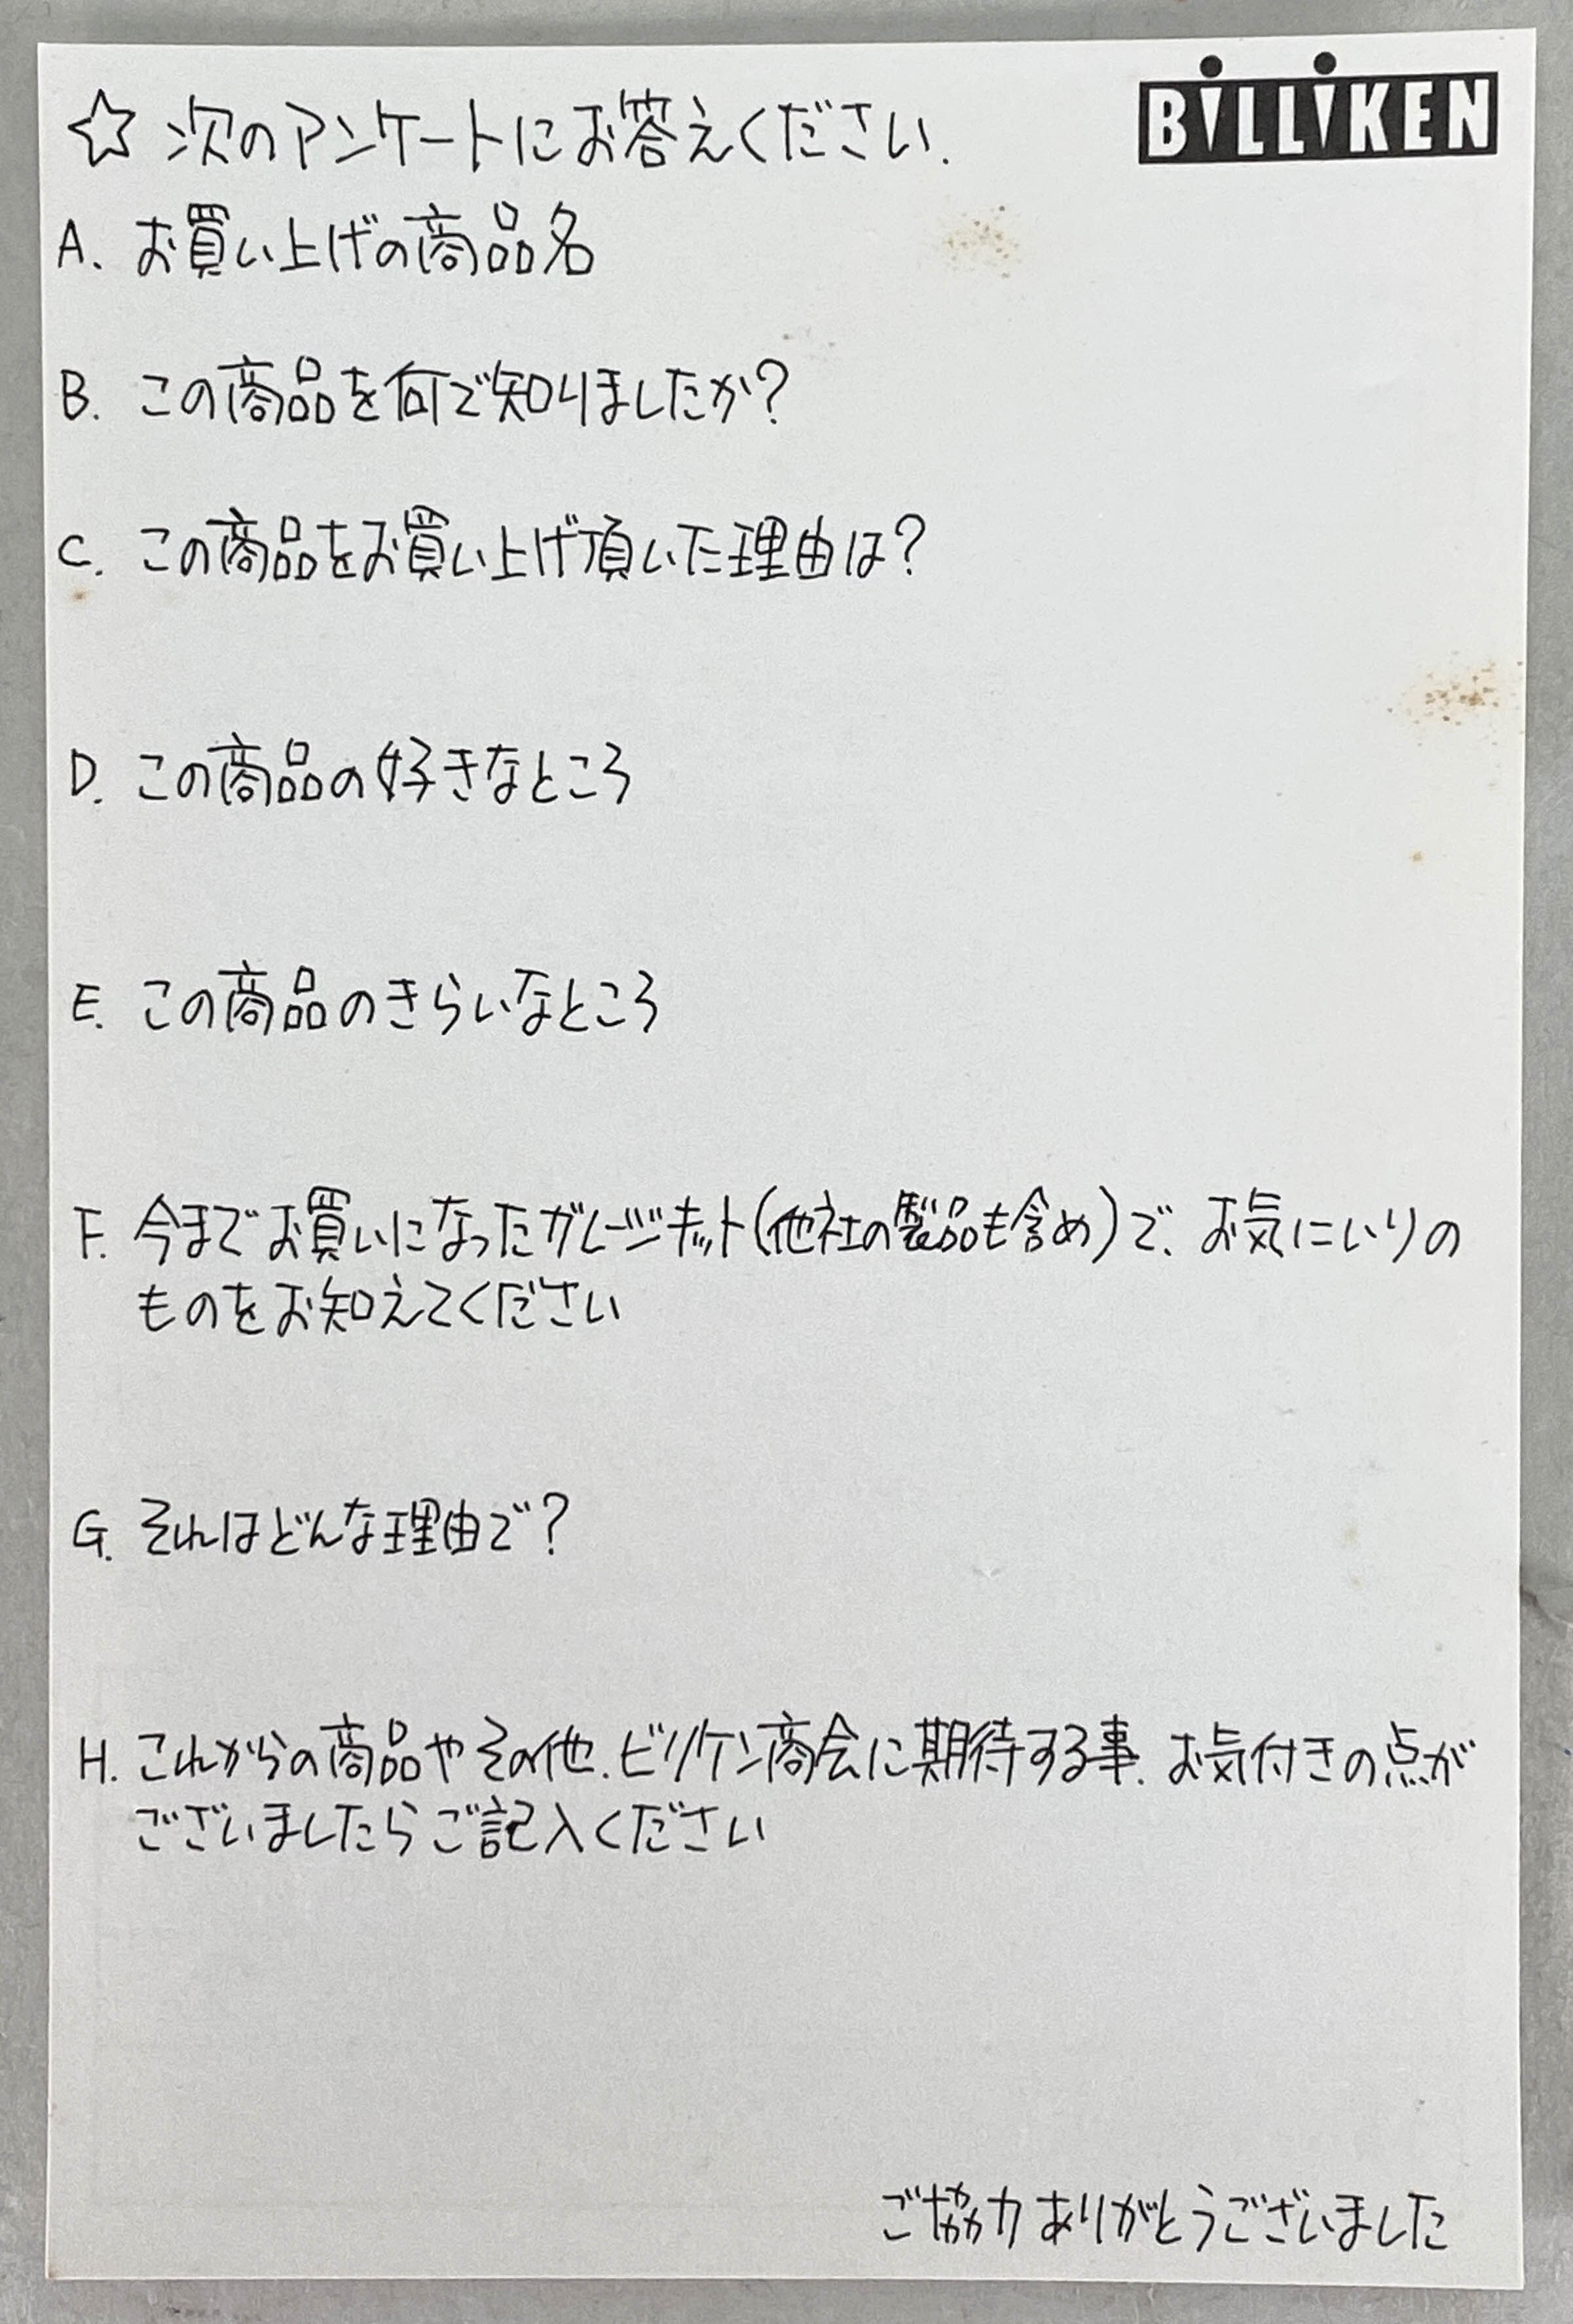 ☆ 次のアンケートにお答えください.
BiLLiKEN
A. お買い上げの商品名
B. この商品を何で知りましたか?
C. この商品をお買い上げ頂いた理由は?
D. この商品の好きなところ
E. この商品のきらいなところ
F. 今までお買いになったガレージキット(他社の製品も含め)で、お気にいりの
ものをお知えてください
G. それはどんな理由で?
H. これからの商品やその他.ビリケン商会に期待する事.お気付きの点が
ございましたらご記入ください
ご協力ありがとうございました